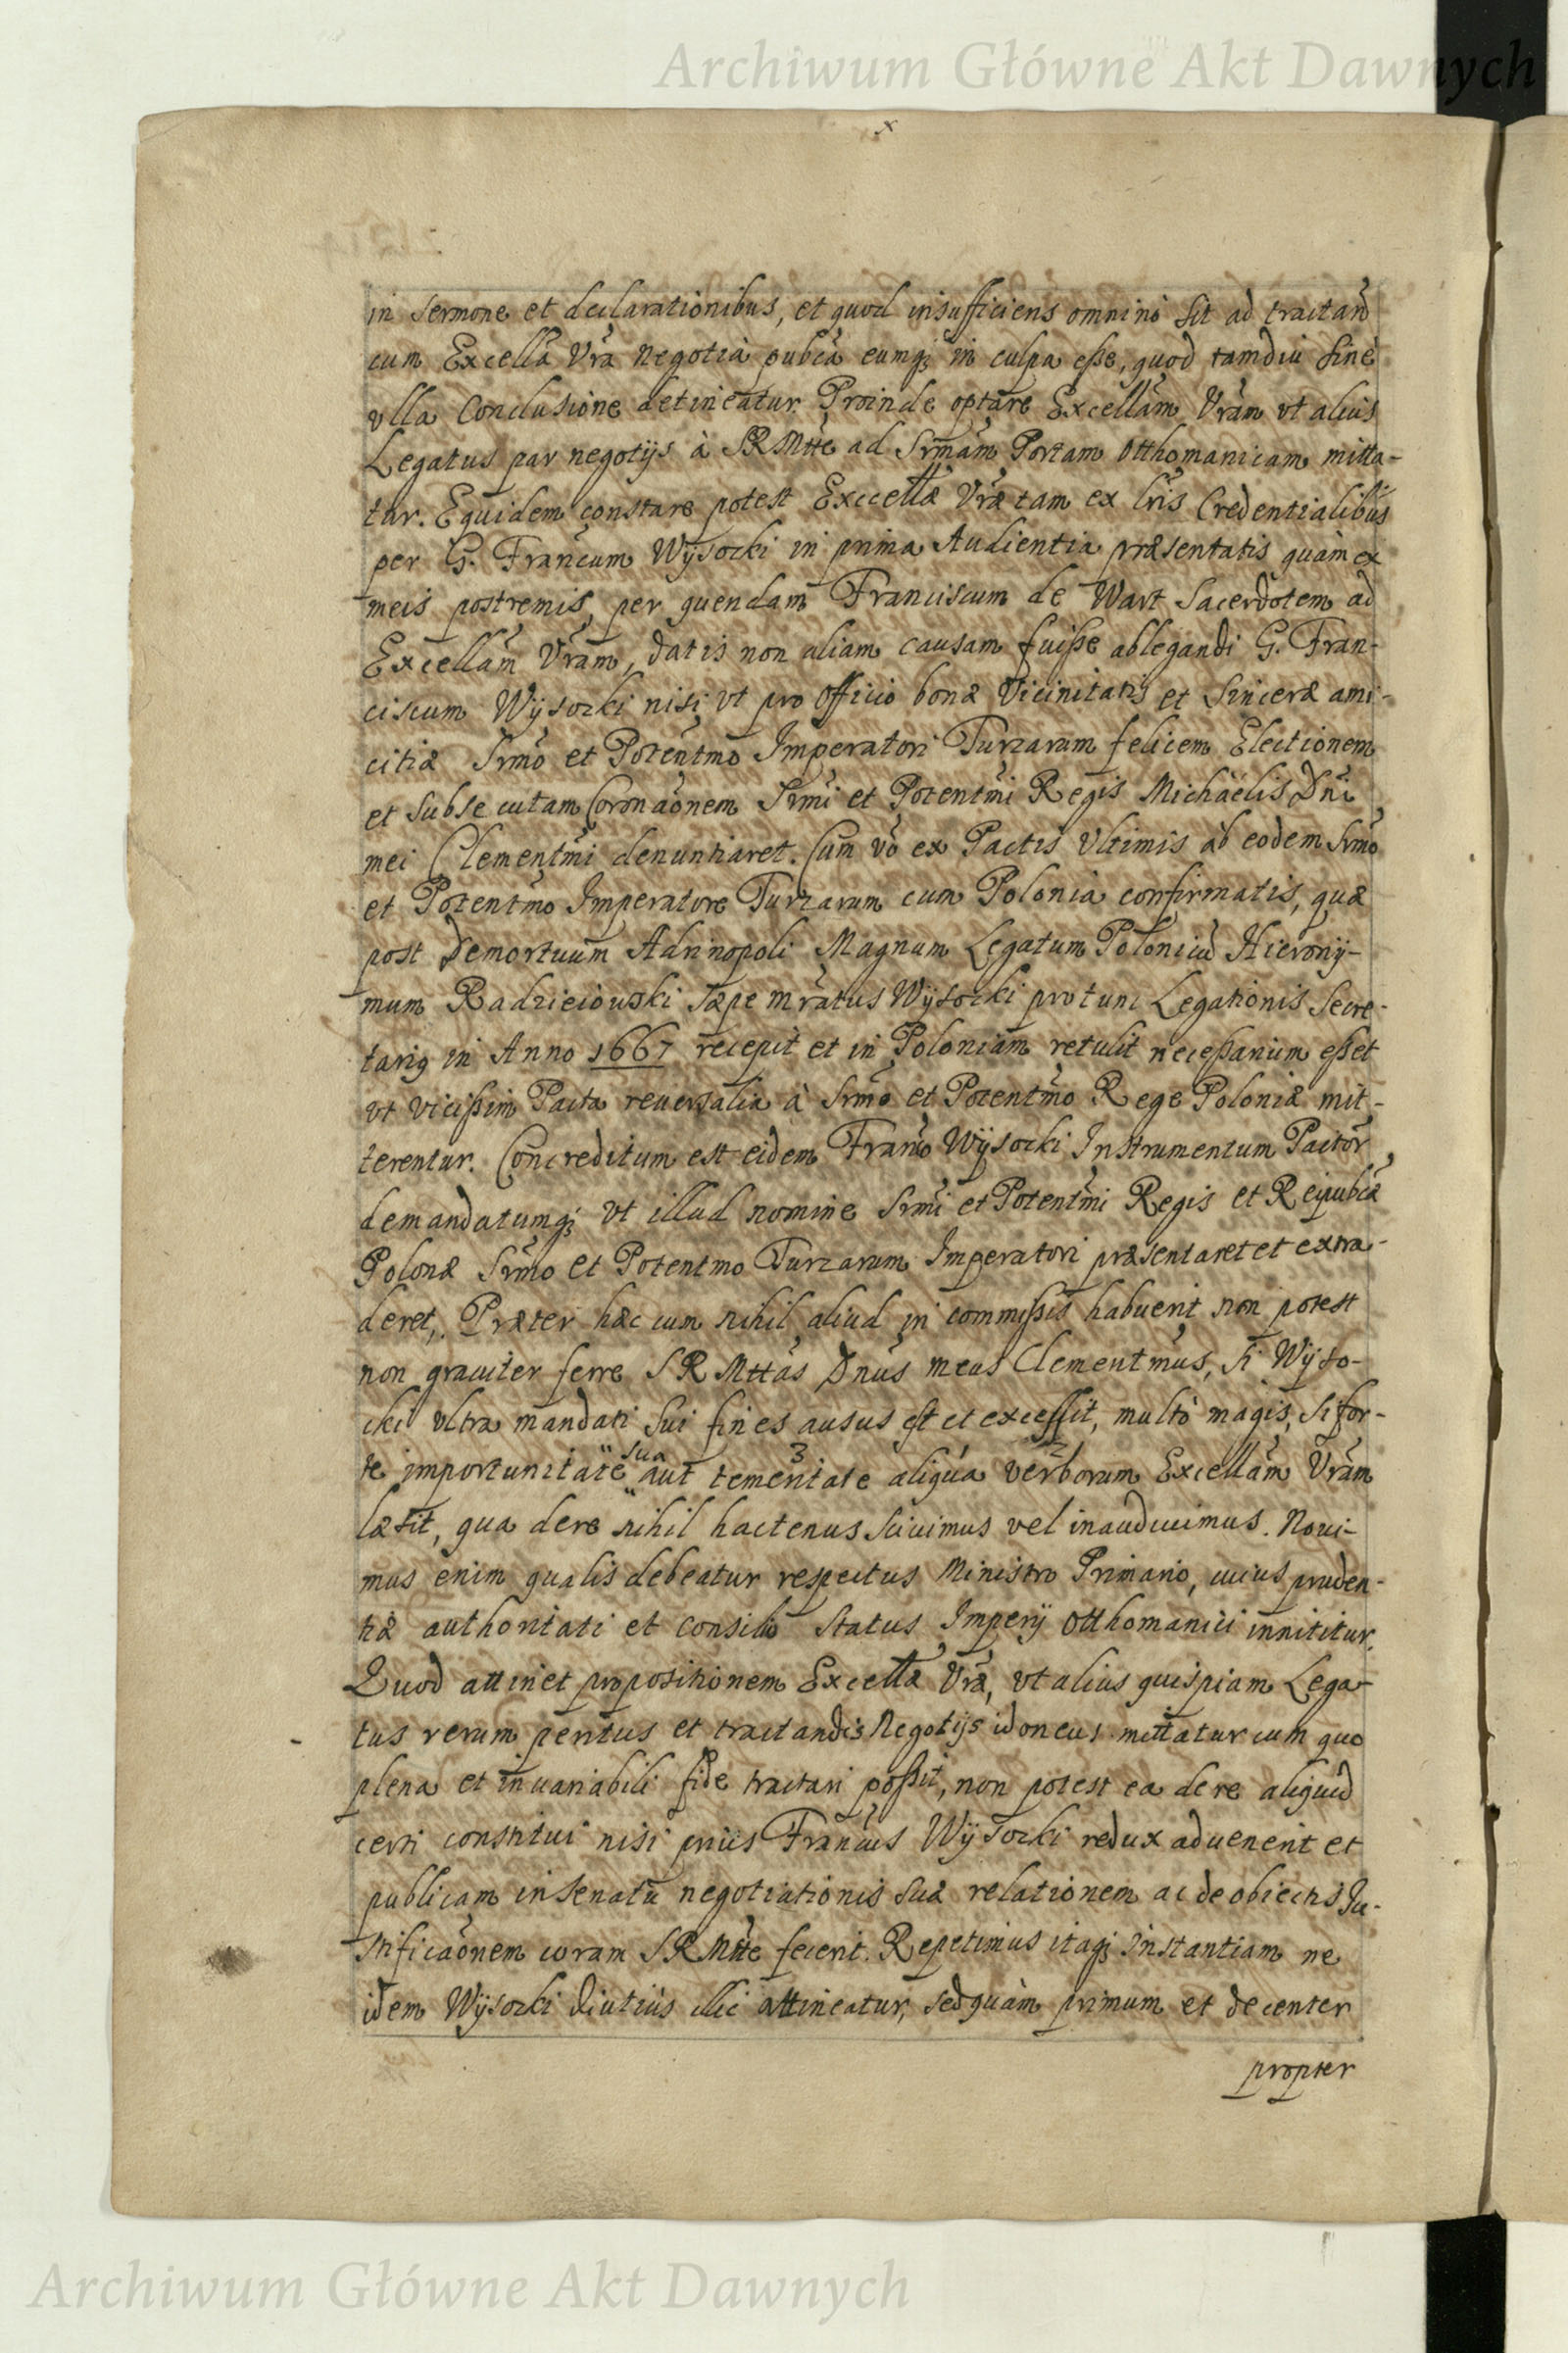 Archiwum Główne Akt Dawnych
x
in sermone et declarationibus, et quod insufficiens omninò sit ad tractand̃
cum Excellã Vrã negotia pubcã eumq; in culpa esse, quod tamdiù sine
ulla Conclusione detineatur. Proinde optare Excellam̃ Vram̃ ut alius
Legatus par negotijs à SRMtte ad Srmam̃ Portam Otthomanicam mitta-
tur. Equidem constare potest Excellæ Vræ tam ex lris Credentialibus
per G. Francum Wysocki in prima Audientia præsentatis quàm ex
meis postremis, per quendam Franciscum de Wart Sacerdotem ad
Excellam̃ Vram̃, datis non aliam causam fuisse ablegandi G. Fran-
ciscum Wysocki nisi ut pro Officio bonæ Vicinitatis et Sinceræ ami-
citiæ Srmo et Potentmo Imperatori Turzarum felicem Electionem
et Subsecutam Coronaõnem Srmi et Potentmi Regis Michaëlis Dni
mei Clementmi denuntiaret. Cum vo ex Pactis Ultimis ab eodem Srmo
et Potentmo Imperatore Turzarum cum Polonia confirmatis, quæ
post Demortuum Adrinopoli Magnum Legatum Polonicũ Hierony-
mum Radzieiowski sæpe mratus Wysocki pro tunc Legationis Secre-
tarig in Anno 1667 recepit et in Poloniam retulit necessarium esset
ut vicissim Pacta reuersalia à Srmo et Potentmo Rege Poloniæ mit-
terentur. Concreditum est eidem Franco Wysocki Instrumentum Pactor̃,
demandatumq; ut illud nomine Srmi et Potentmi Regis et Reipubcæ
Polonæ Srmo et Potentmo Turzarum Imperatori præsentaret et extra-
deret, Præter hæc cum nihil aliud in commissis habuerit non potest
non grauiter ferre SRMttas Dnus meus Clementmus, si Wyso-
cki ultra mandati sui fines ausus est et excessit, multò magis, si for-
te importunitate sua aut temeritate 3 aliqua verborum 2 Excellam̃ Vram̃
læsit, qua de re nihil hactenus sciuimus vel inaudiuimus. Noui-
mus enim qualis debeatur respectus Ministro Primario, cuius pruden-
tiæ authoritati et consilio Status Imperij Otthomanici innititur.
Quod attinet propositionem Excellæ Vræ, ut alius quispiam Lega-
tus rerum peritus et tractandis Negotijs idoneus mittatur cum quo
plena et inuariabili fide tractari possit, non potest ea de re aliquid
certi constitui nisi priùs Francus Wysocki redux aduenerit et
publicam in Senatu negotiationis suæ relationem ac de obiectis Ju-
stificaõnem coram SRMtte fecerit. Repetimus itaq; Instantiam ne
idem Wysocki diutiùs illic attineatur, sed quàm primum et decenter
propter
Archiwum Główne Akt Dawnych